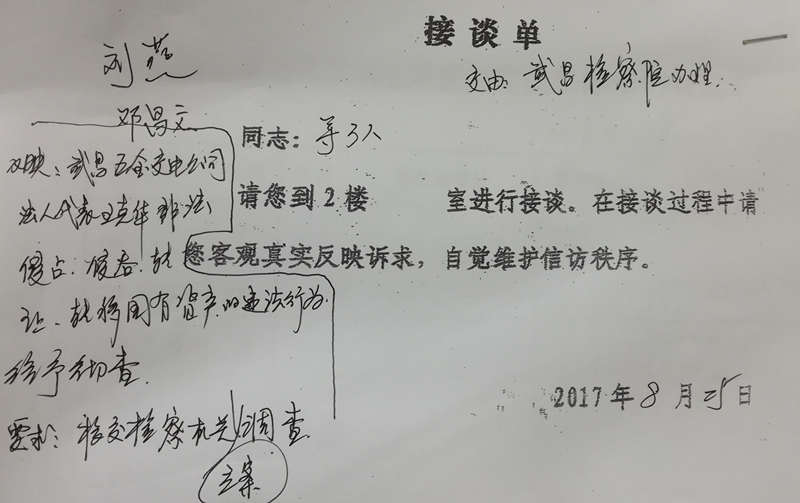 接谈单
刘燕
交由: 武昌检察院办理.
邓昌文
同志: 等3人
请您到2楼 室进行接谈。在接谈过程中请
您客观真实反映诉求，自觉维护信访秩序。
反映: 武昌五金交电公司
法人代表王克华非法
侵占. 侵吞. 转
让、转移国有资产的违法行为.
给予彻查.
要求: 移交检察机关调查.
立案
2017年8月25日